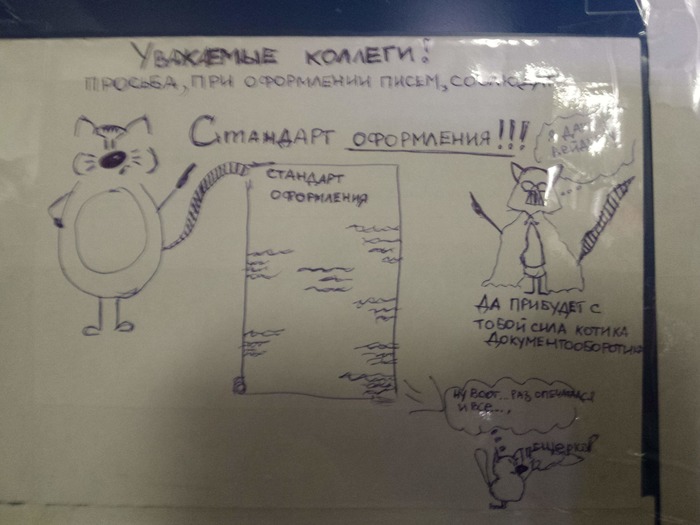 Уважаемые коллеги!
просьба, при оформлении писем,
Стандарт оформления!!!
Стандарт
оформления
Я
Да прибудет с
тобой сила котика
документооборотика
Ну воот... раз
и все...,